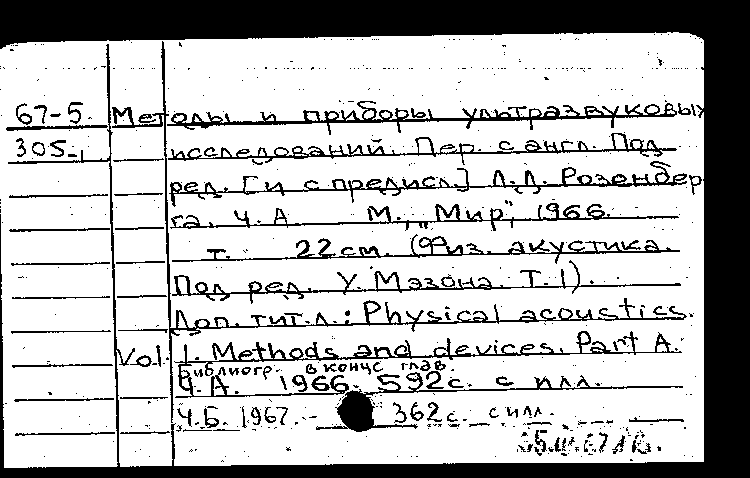 67-5. Методы и приборы ультразвуковых
305-1 исследований. Пер. с англ. Под
ред. [и с предисл.] Л.Д. Розенбер-
га. Ч. А М., „Мир“, 1966.
т. 22 см. (Физ. акустика.
Под ред. У. Мэзона. Т. 1).
Доп. тит. л.: Physical acoustics.
Vol. 1. Methods and devices. Part A.
Библиогр. в конце глав.
Ч. А. 1966. 592 с. с илл.
Ч. Б. 1967. - 362 с. с илл.